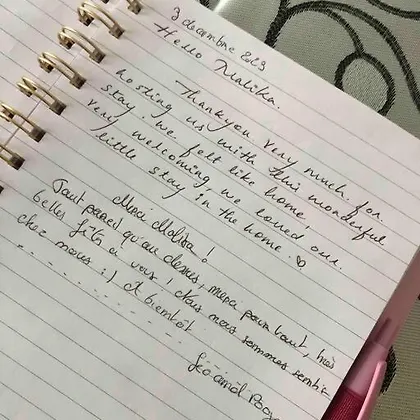 3 decembre 2023
Hello Malika
Thank you very much for
hosting us with this wonderful
stay, we felt like home,
very welcoming, we loved our
little stay in the home. ♡
Merci Malika!
Tout pareil qu'au dessus, merci pour tout, très
belles fêts a vous! Nous nous sommes sentis
chez nous :) A bientôt